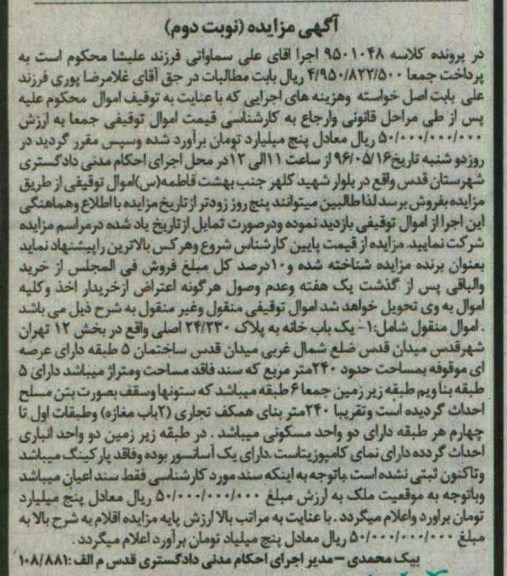 آگهی مزایده (نوبت دوم)
در پرونده کلاسه ۹۵۰۱۰۴۸ اجرا اقای علی سماواتی فرزند علیشا محکوم است به
پرداخت جمعا ۴/۹۵۰/۸۲۲/۵۰۰ ریال بابت مطالبات در حق آقای غلامرضا پوری فرزند
علی بابت اصل خواسته وهزینه های اجرایی که با عنایت به توقیف اموال محکوم علیه
پس از طی مراحل قانونی وارجاع به کارشناسی قیمت اموال توقیفی جمعا به ارزش
۵۰/۰۰۰/۰۰۰/۰۰۰ ریال معادل پنج میلیارد تومان برآورد شده وسپس مقرر گردید در
روزدو شنبه تاریخ۹۶/۰۵/۱۶ از ساعت ۱۱الی ۱۲در محل اجرای احکام مدنی دادگستری
شهرستان قدس واقع در بلوار شهید کلهر جنب بهشت فاطمه(س)اموال توقیفی از طریق
مزایده بفروش برسد لذا طالبین میتوانند پنج روز زودتر از تاریخ مزایده با اطلاع وهماهنگی
این اجرا از اموال توقیفی بازدید نموده ودرصورت تمایل ازتاریخ یاد شده درمراسم مزایده
شرکت نمایید. مزایده از قیمت پایین کارشناس شروع وهرکس بالاترین راپیشنهاد نماید
بعنوان برنده مزایده شناخته شده و۱۰درصد کل مبلغ فروش فی المجلس از خرید
والباقی پس از گذشت یک هفته وعدم وصول هرگونه اعتراض ازخریدار اخذ وکلیه
اموال به وی تحویل خواهد شد اموال توقیفی منقول وغیر منقول به شرح ذیل می باشد
. اموال منقول شامل:۱- یک باب خانه به پلاک ۲۴/۲۳۰ اصلی واقع در بخش ۱۲ تهران
شهرقدس میدان قدس ضلع شمال غربی میدان قدس ساختمان ۵ طبقه دارای عرصه
ای موقوفه بمساحت حدود ۲۴۰متر مربع که سند فاقد مساحت ومتراژ میباشد دارای ۵
طبقه بنا ویم طبقه زیر زمین جمعا ۶ طبقه میباشد که ستونها وسقف بصورت بتن مسلح
احداث گردیده است وتقریبا ۲۴۰متر بنای همکف تجاری (۲باب مغازه) وطبقات اول تا
چهارم هر طبقه دارای دو واحد مسکونی میباشد . در طبقه زیر زمین دو واحد انباری
احداث گردده دارای نمای کامپوزیتاست .دارای یک آسانسور بوده وفاقد پارکینگ میباشد
وتاکنون ثبتی نشده است .باتوجه به اینکه سند مورد کارشناسی فقط سند اعیان میباشد
وباتوجه به موقعیت ملک به ارزش مبلغ ۵۰/۰۰۰/۰۰۰/۰۰۰ ریال معادل پنج میلیارد
تومان براورد واعلام میگردد . با عنایت به مراتب بالا ارزش پایه مزایده اقلام به شرح بالا به
مبلغ ۵۰/۰۰۰/۰۰۰/۰۰۰ ریال معادل پنج میلیاد تومان برآورد اعلام میگردد .
بیک محمدی – مدیر اجرای احکام مدنی دادگستری قدس م الف:۱۰۸/۸۸۱